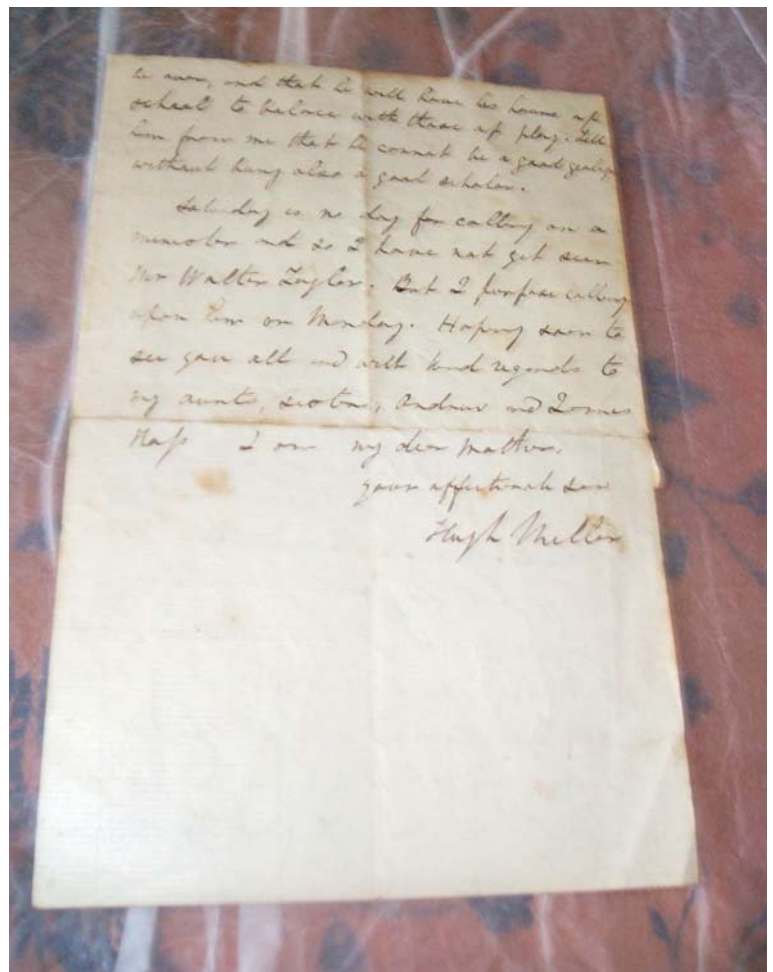 be over, and that he will have his hours of
school to balance with those of play. Tell
him from me that he cannot be a good geologist
without being also a good scholar.
Saturday is no day for calling on a
minister and so I have not yet seen
Mr Walter Taylor. But I purpose calling
upon him on Monday. Hoping soon to
see you all and with kind regards to
my aunts, sisters, Andrew and James
Ross I am my dear Mother,
your affectionate son
Hugh Miller